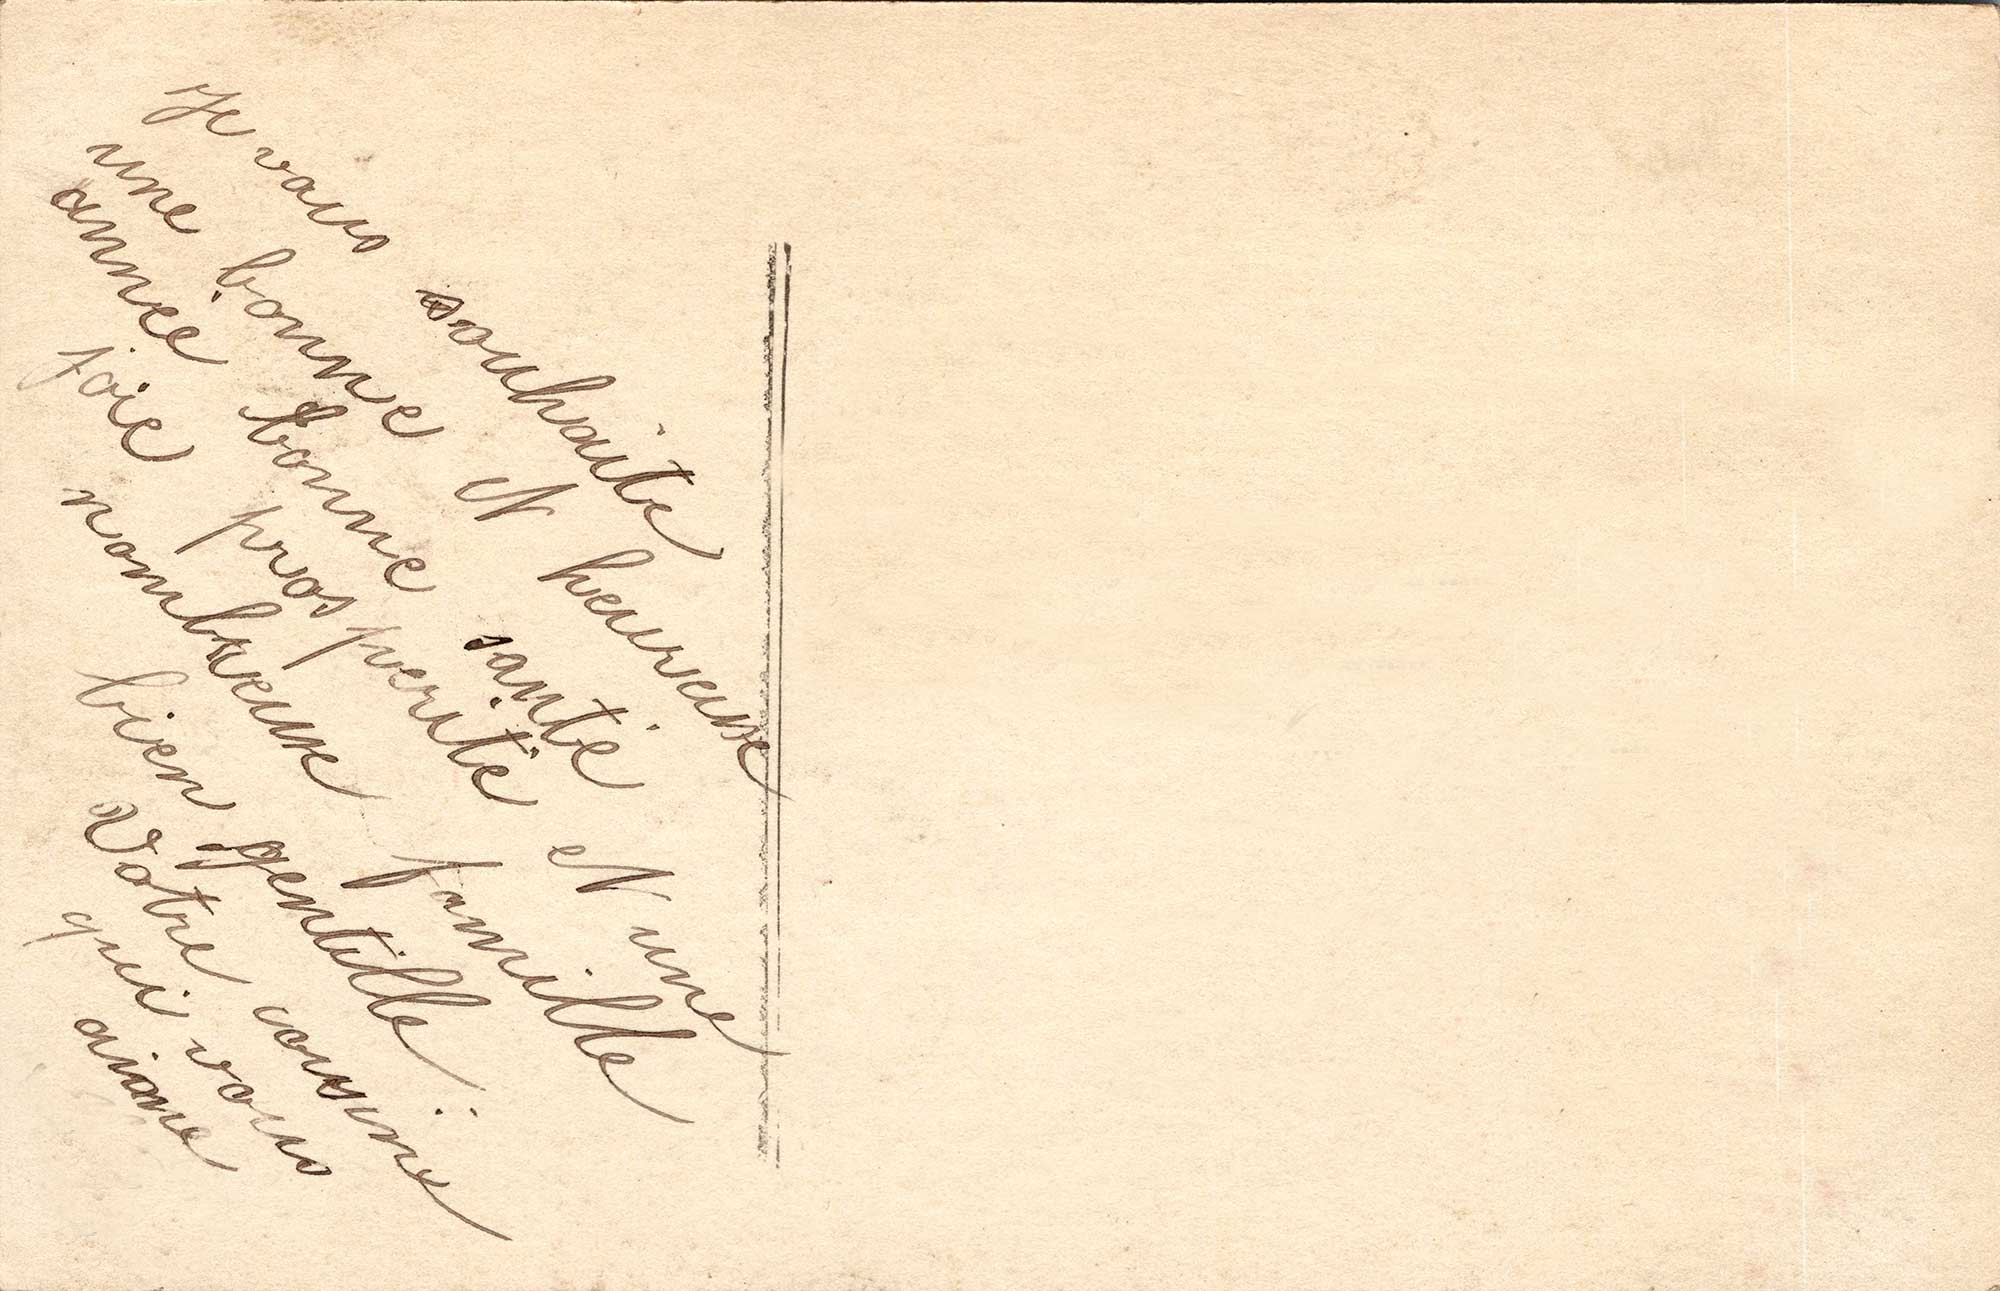 Je vous souhaite
une bonne et heureuse
année bonne santé et une
joie prosperité
nombreuse famille
bien gentille
Votre cousine
qui vous
aime